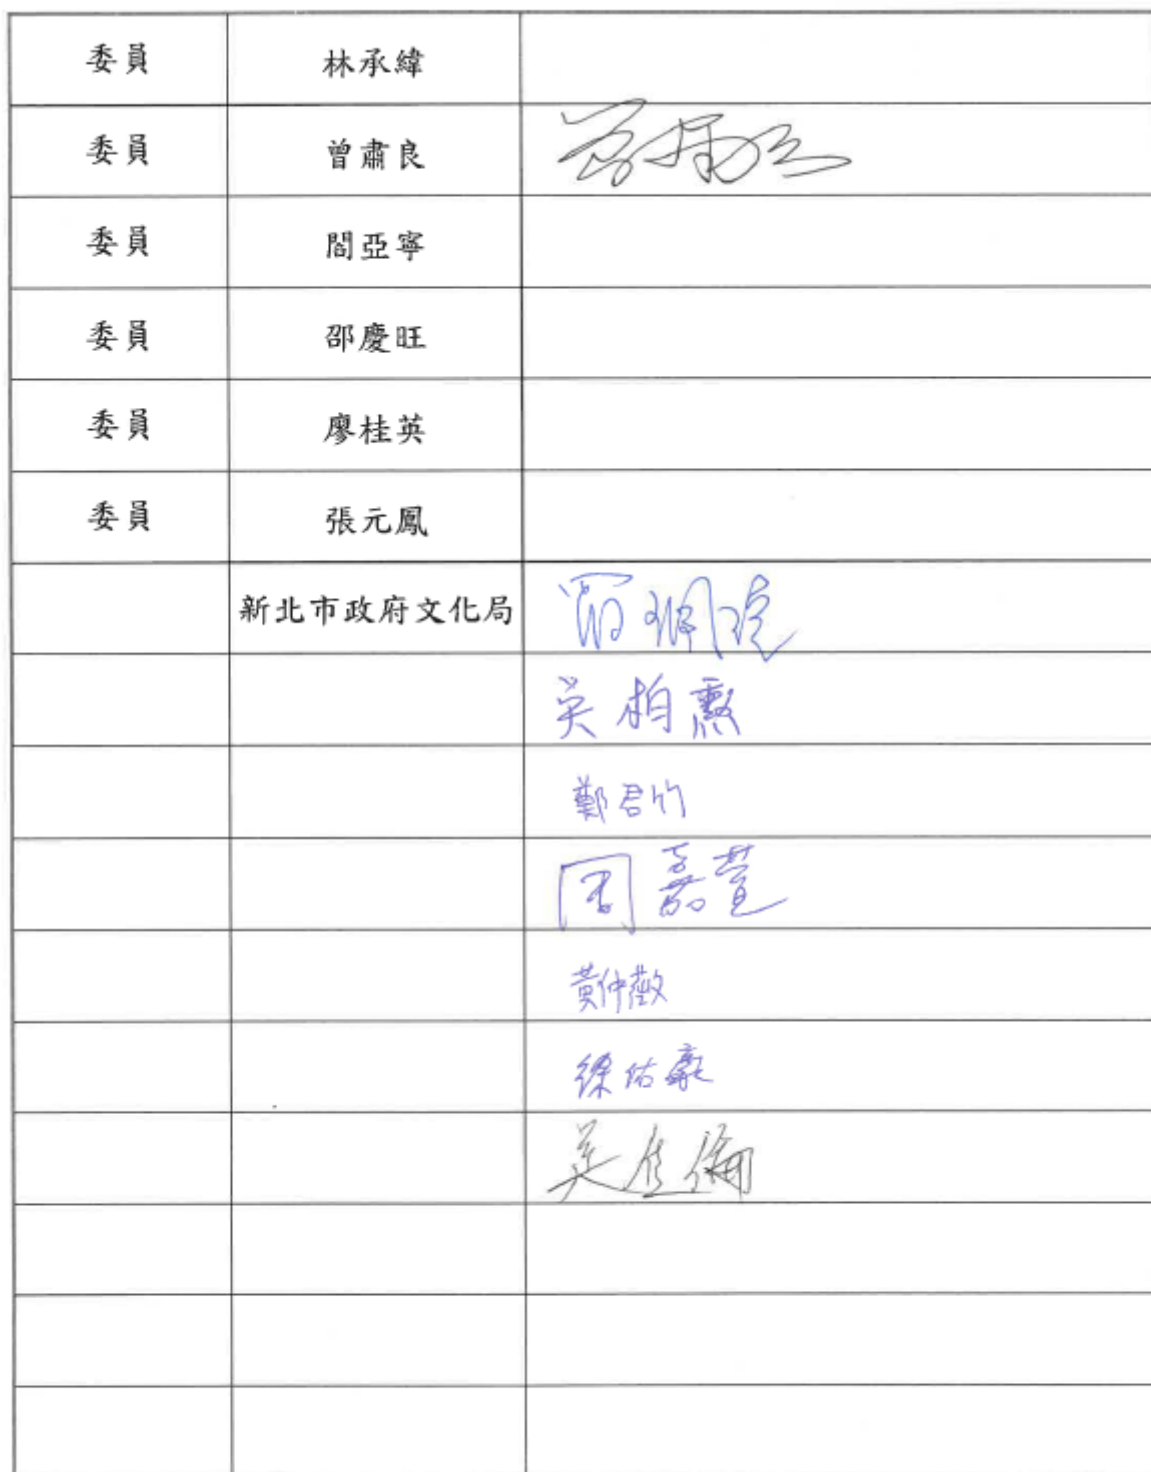 委員 林承緯
委員 曾肅良 曾肅良
委員 閻亞寧
委員 邵慶旺
委員 廖桂英
委員 張元鳳
新北市政府文化局
吳柏勳
鄭君竹
周嘉萱
黃仲
徐佑豪
吳佳倫